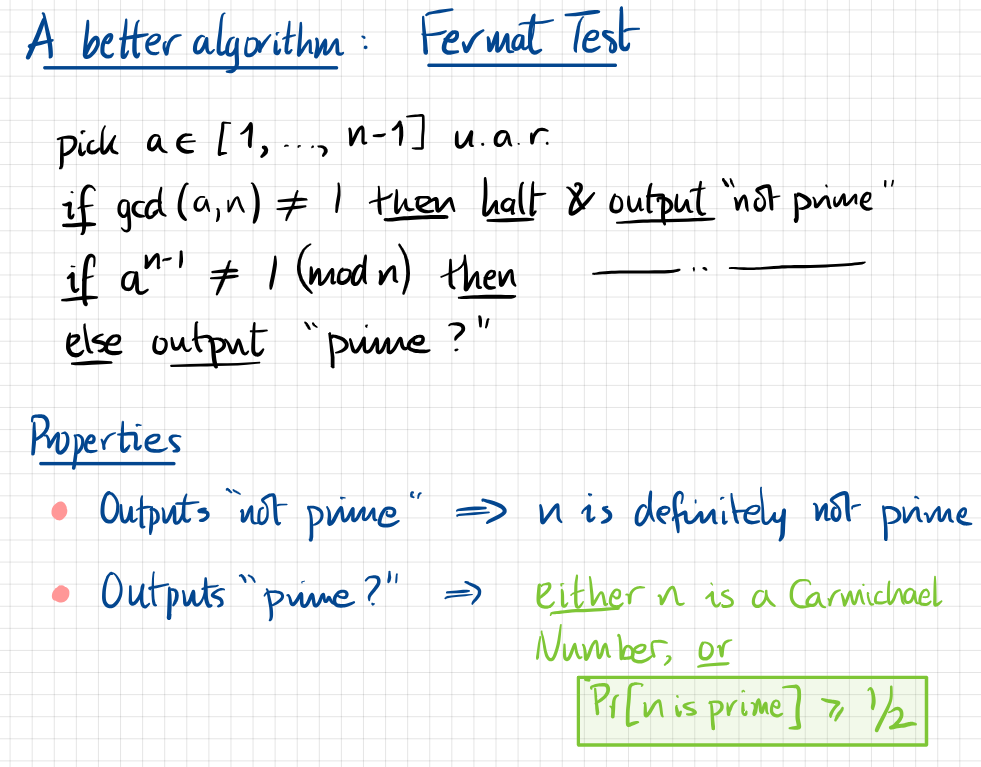 A better algorithm : Fermat Test
pick a ∈ [1, ..., n-1] u.a.r.
if gcd (a,n) ≠ 1 then halt & output "not prime"
if a^{n-1} ≠ 1 (mod n) then —— .. ——
else output "prime ?"
Properties
• Outputs "not prime" ⇒ n is definitely not prime
• Outputs "prime ?" ⇒ either n is a Carmichael
Number, or
Pr[n is prime] ⩾ 1/2